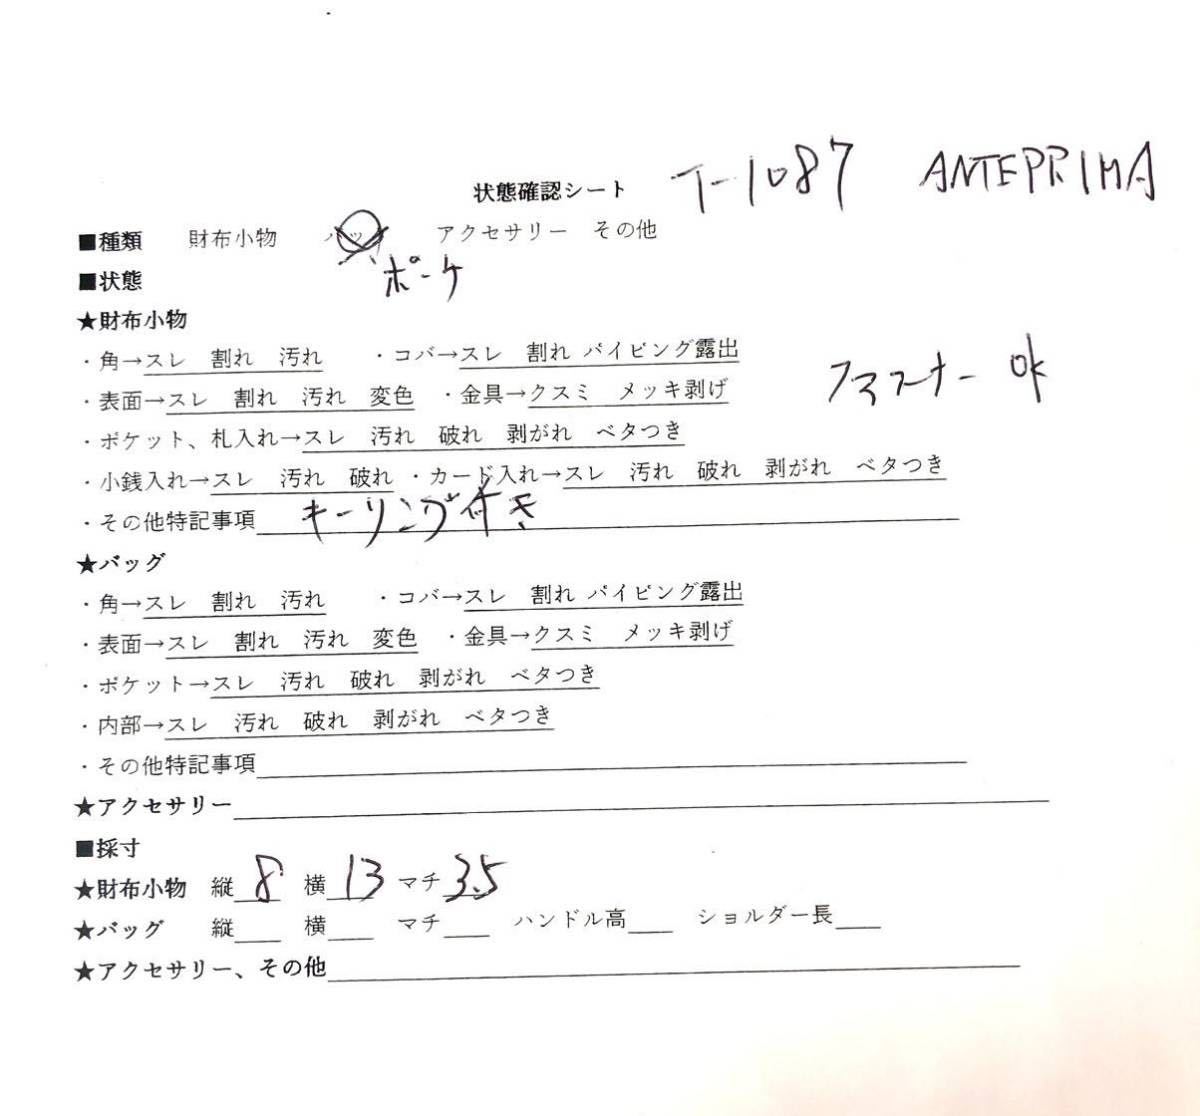 状態確認シート T-1087 ANTEPRIMA
■種類 財布小物 バッグ アクセサリー その他
ポーチ
■状態
★財布小物
・角→スレ 割れ 汚れ ・コバ→スレ 割れ パイピング露出
ファスナー ok
・表面→スレ 割れ 汚れ 変色 ・金具→クスミ メッキ剥げ
・ポケット、札入れ→スレ 汚れ 破れ 剥がれ ベタつき
・小銭入れ→スレ 汚れ 破れ ・カード入れ→スレ 汚れ 破れ 剥がれ ベタつき
・その他特記事項 キーリング付き
★バッグ
・角→スレ 割れ 汚れ ・コバ→スレ 割れ パイピング露出
・表面→スレ 割れ 汚れ 変色 ・金具→クスミ メッキ剥げ
・ポケット→スレ 汚れ 破れ 剥がれ ベタつき
・内部→スレ 汚れ 破れ 剥がれ ベタつき
・その他特記事項
★アクセサリー
■採寸
★財布小物 縦 8 横 13 マチ 3.5
★バッグ 縦 横 マチ ハンドル高 ショルダー長
★アクセサリー、その他